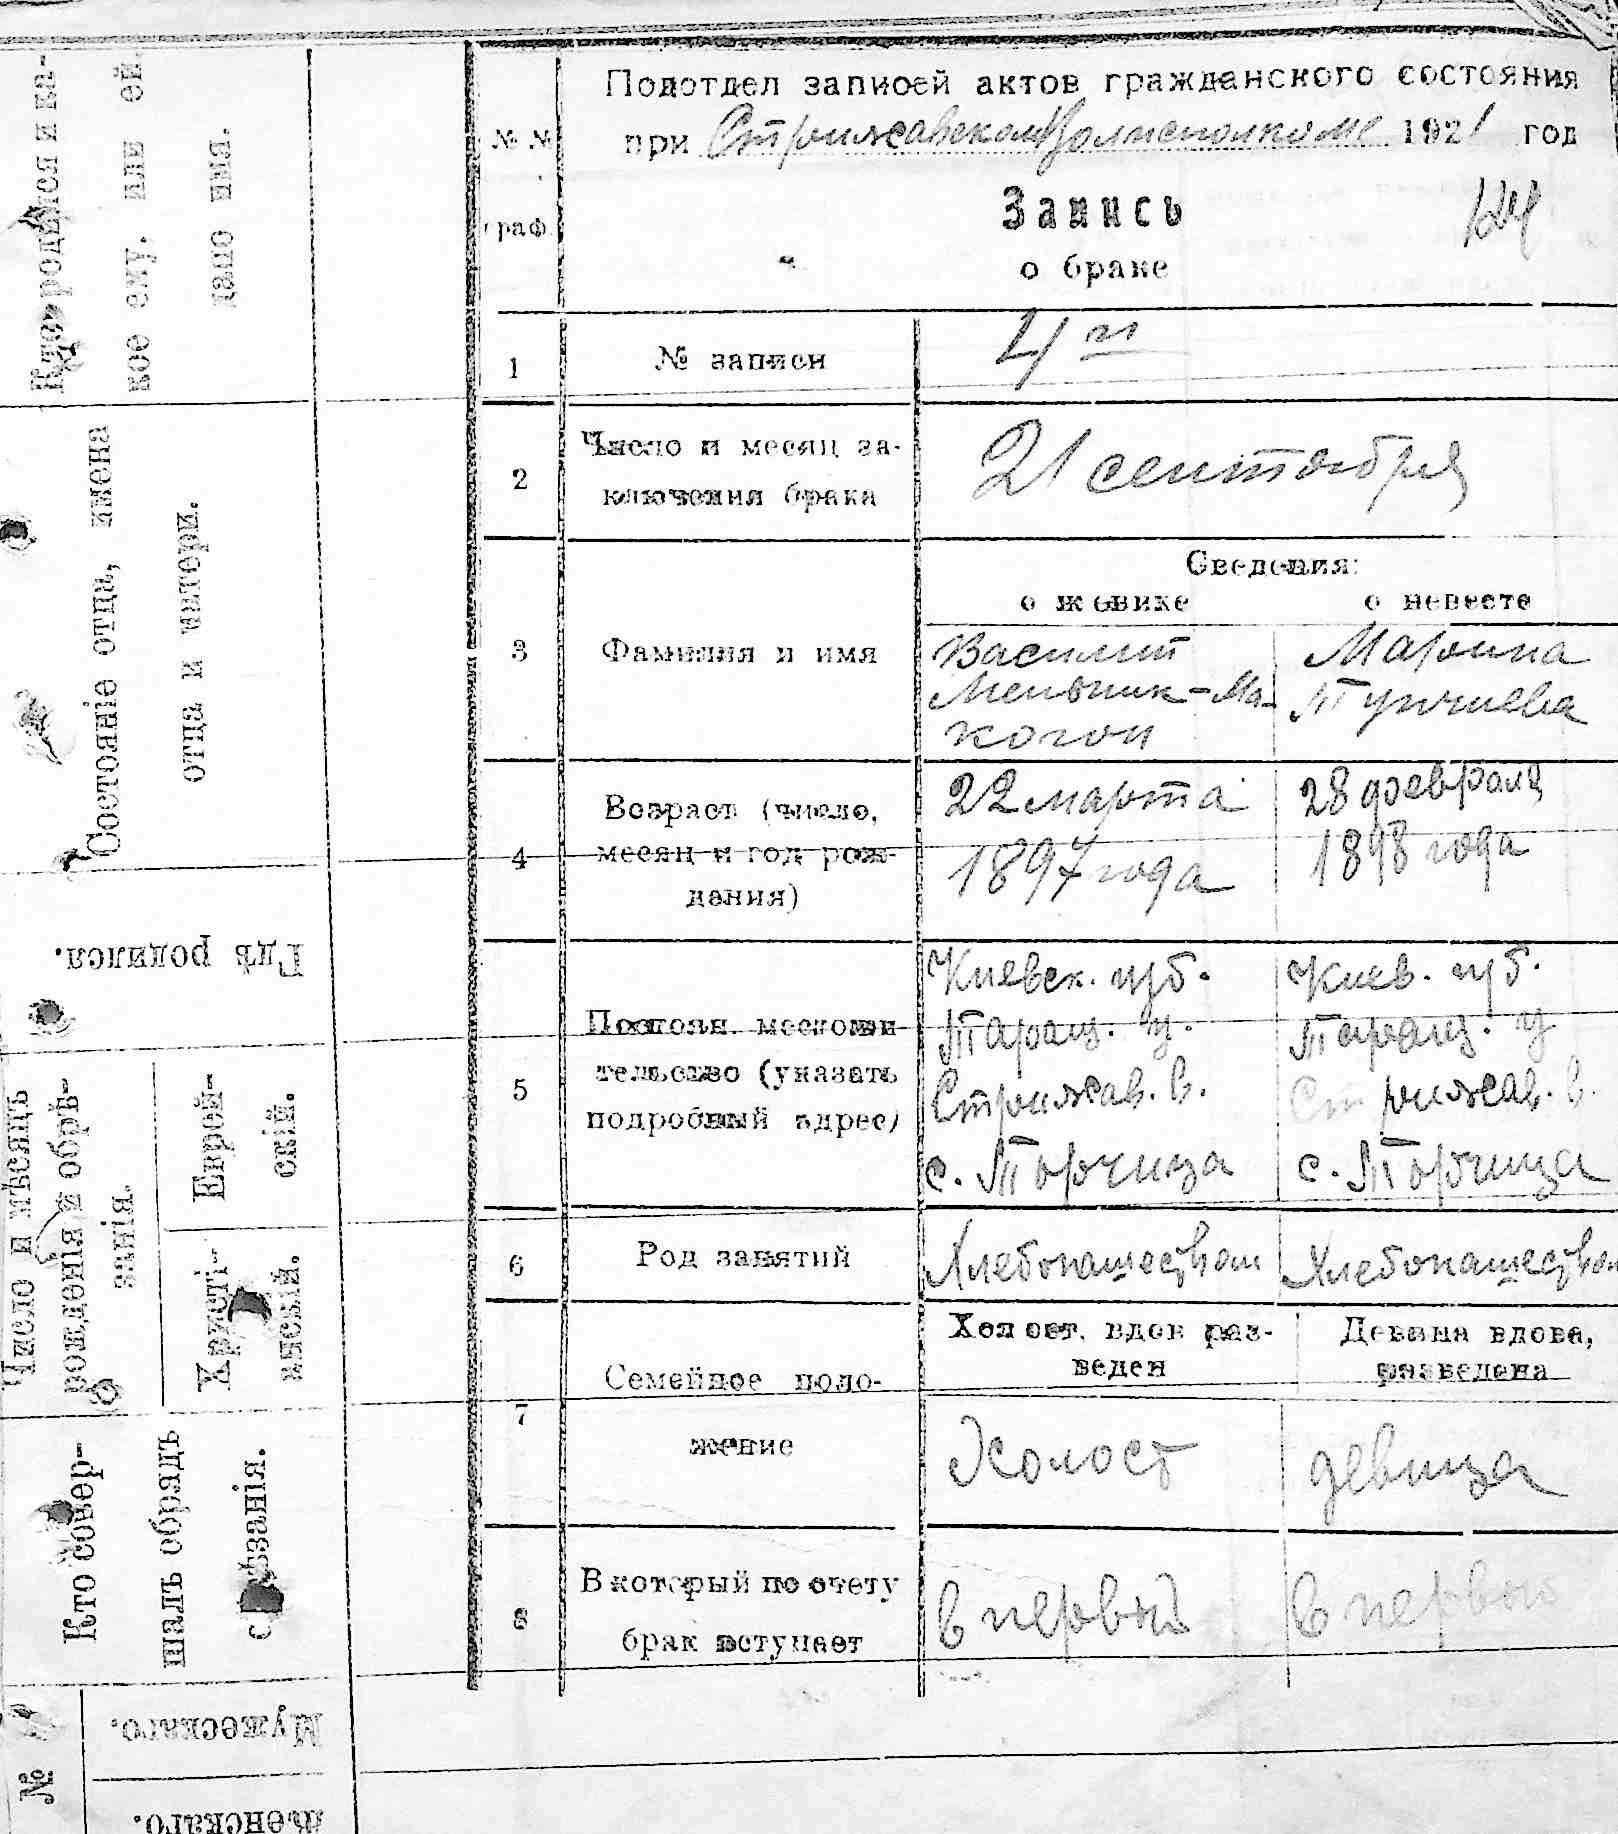 Подотдел записей актов гражданского состояния
при Стрижавском Волисполкоме 1921 год
№ №
граф.
Запись
о браке
1 № записи 4
2 Число и месяц за-
ключения брака
21 сентября
Сведения:
о женихе о невесте
3 Фамилия и имя
Василий
Мельник-Ма-
когон
Марина
4 Возраст (число,
месяц и год рож-
дения)
22 марта
1897 года
28 февраля
1898 года
5 Постоян. местожи
тельство (указать
подробный адрес)
Киевск. губ.
Таращ. у.
Стрижав. в.
с. Торчица
Киев. губ.
Таращ. у
Стрижав. в.
с. Торчица
6 Род занятий
Хлебопашеством
Хлебопашеством
7 Семейное поло-
жение
Холост. вдов раз-
веден
Девица вдова,
разведена
Холост
девица
8 В который по счету
брак вступает
в первый
в первый
Кто родился и ка-
кое ему, или ей
дано имя.
Состояніе отца, имена
отца и матери.
Гдѣ родился.
Число и мѣсяцъ
рожденія и обрѣ-
занія.
Еврей-
скій.
Христі-
анскій.
Кто совер-
шалъ обрядъ
обрѣзанія.
№
Мужескаго.
Женскаго.